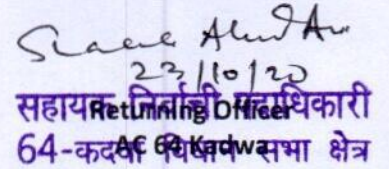 23/10/20
सहायक निर्वाची पदाधिकारी
Returning Officer
64-कदवा विधान सभा क्षेत्र
AC 64 Kadwa